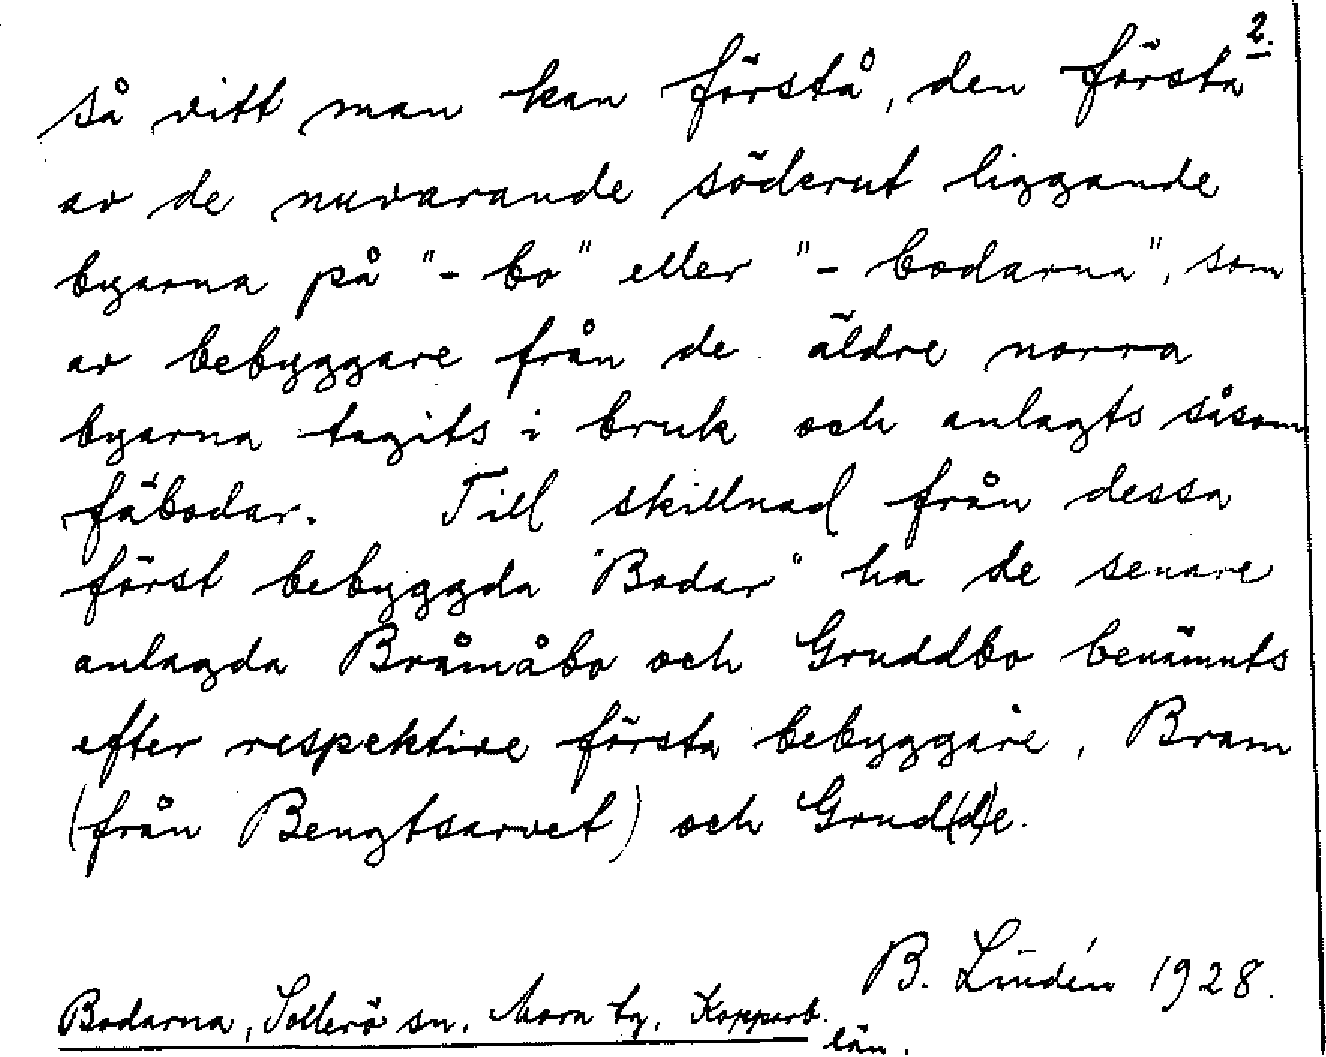 2.
så vitt man kan förstå, den första
av de nuvarande söderut liggande
byarna på "- bo" eller "- bodarna", som
av bebyggare från de äldre norra
byarna tagits i bruk och anlagts såsom
fäbodar. Till skillnad från dessa
först bebyggda "Bodar" ha de senare
anlagda Bråmåbo och Gruddbo benämnts
efter respektive första bebyggare, Bram
(från Bengtsarvet) och Grud(d)e.
B. Lindén 1928.
Bodarna, Sollerö sn. Mora tg. Kopparb.
län.